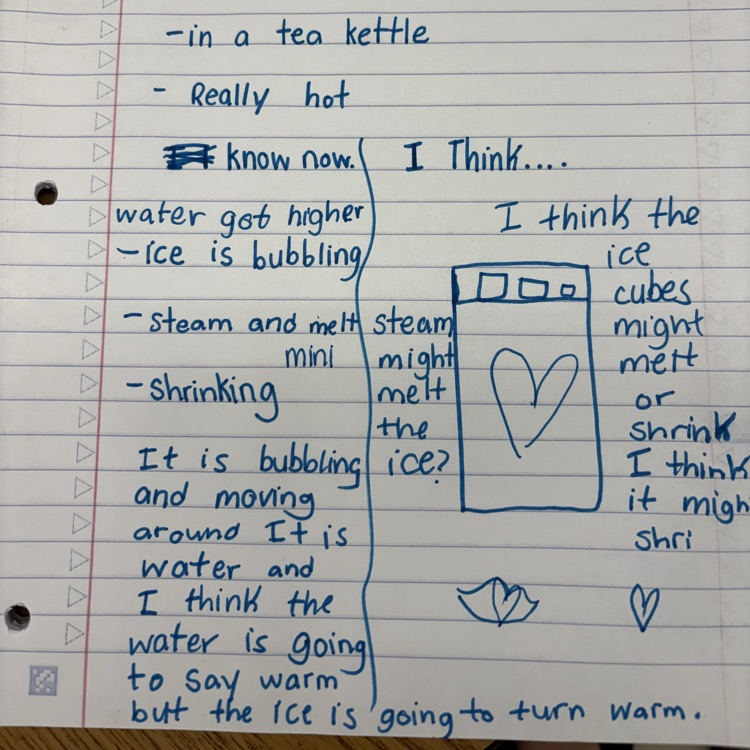 -in a tea kettle
- Really hot
know now.
water got higher
-ice is bubbling
-steam and melt
mini
-shrinking
It is bubbling
and moving
around It is
water and
I think the
water is going
to say warm
but the ice is going to turn warm.
I Think....
steam
might
melt
the
ice?
I think the
ice
cubes
might
melt
or
shrink
I think
it migh
shri